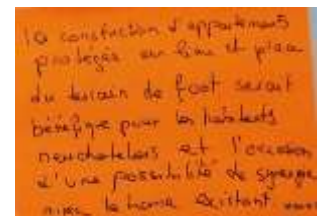 la construction d'appartements
protégés en lieu et place
du terrain de foot serait
bénéfique pour les habitants
neuchatelois et l'occasion
d'une possibilité de synergie
avec le home existant